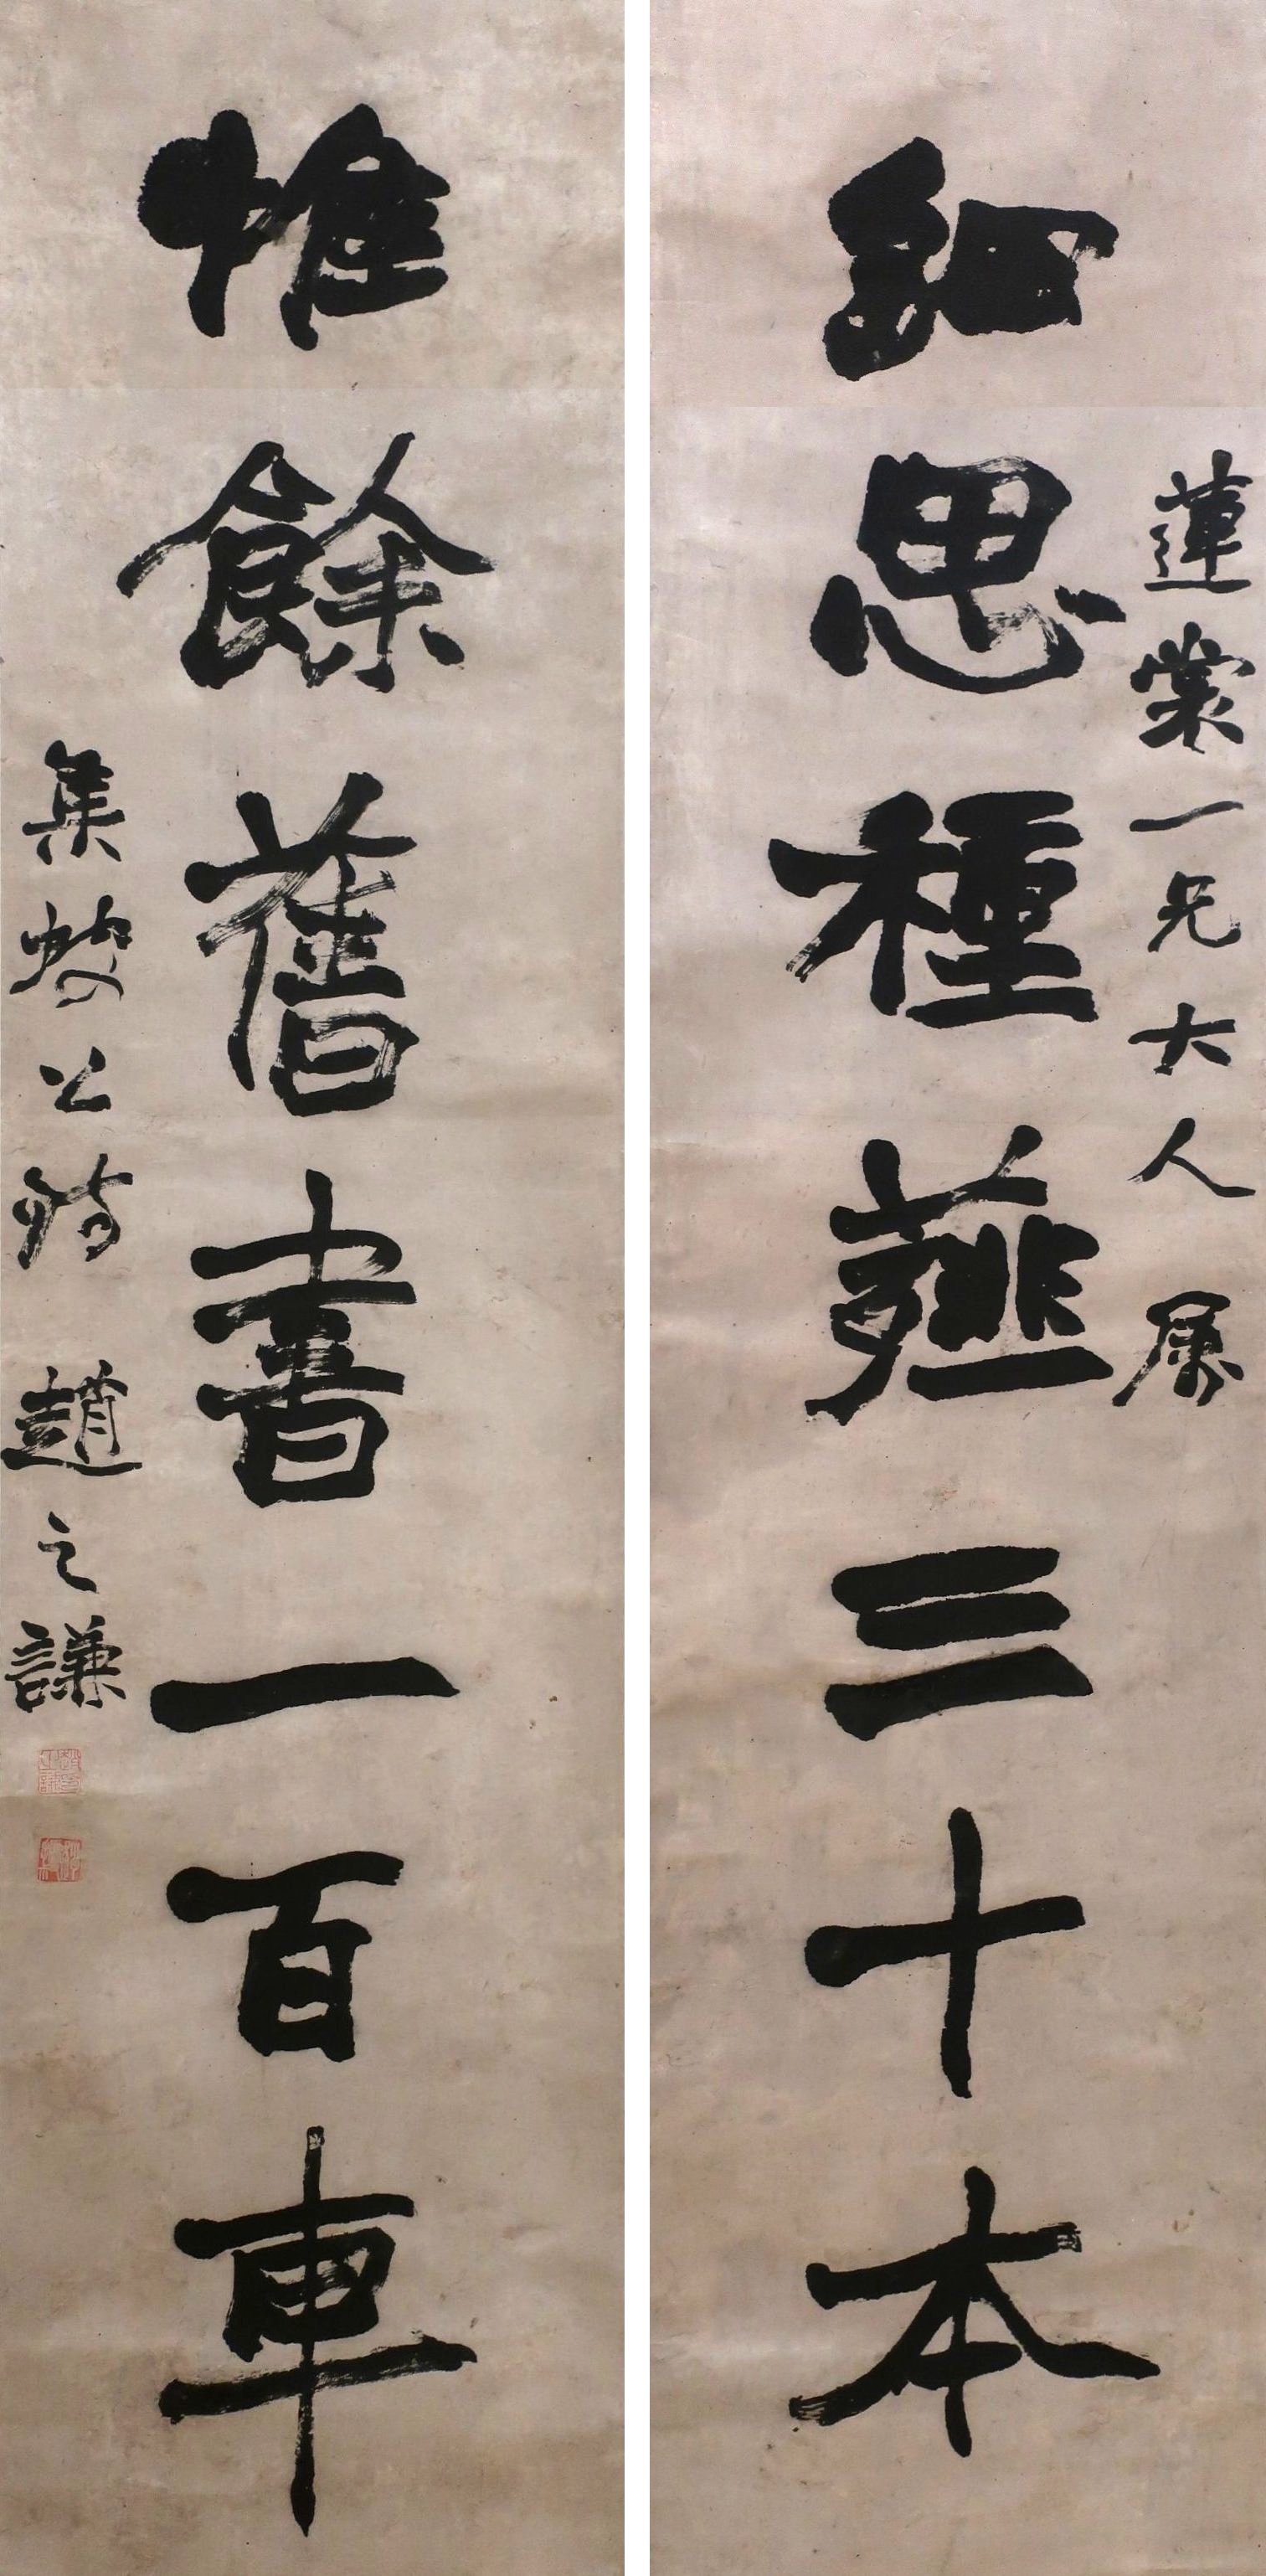 蓮裳一兄大人属
細思種薤三十本
惟餘舊書一百車
集坡公詩 趙之謙